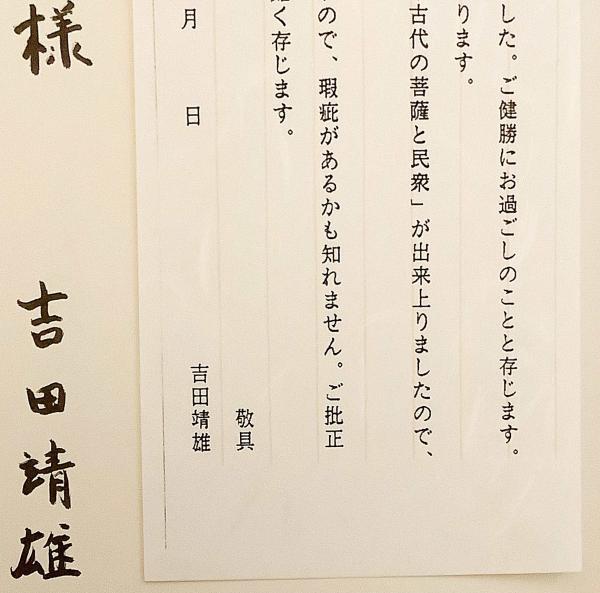 した。ご健勝にお過ごしのことと存じます。
ります。
古代の菩薩と民衆」が出来上りましたので、
ので、瑕疵があるかも知れません。ご批正
く存じます。
敬具
月 日
吉田靖雄
様
吉田靖雄